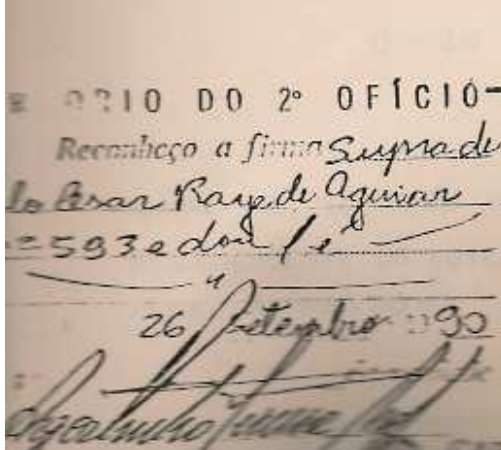 ORIO DO 2º OFÍCIO
Reconheço a firma Supra de
lo Cesar de Aguiar
593 e dou fé
26 Setembro 90